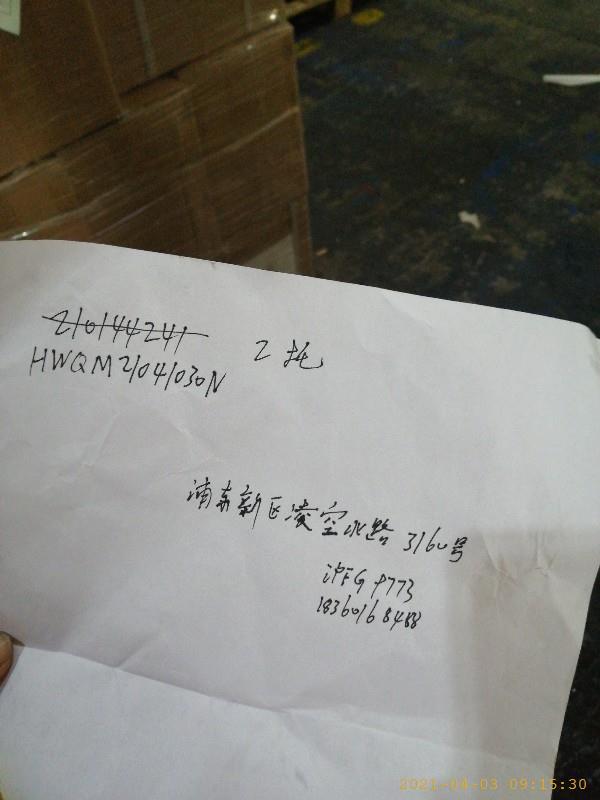 210144241
HWQM21041030N 2托
浦东新区凌空北路3160号
沪FG P773
18360168488
2021-04-03 09:15:30